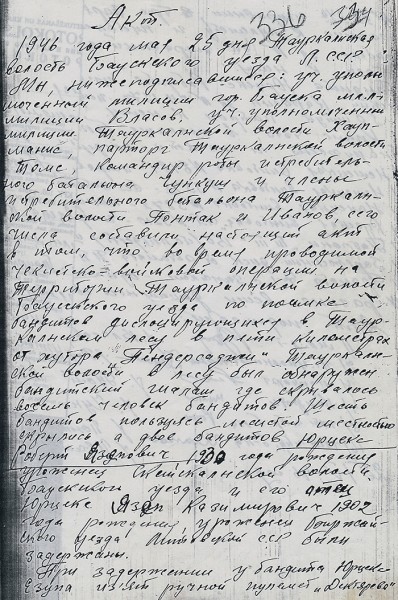 Акт.
336 334
1946 года мая 25 дня Тауркалнская
волость Бауского уезда Л.ССР
Мы, нижеподписавшиеся: уч. уполно
моченный милиции гор. Бауска мл.
милиции Власов. уч. уполномоченный
милиции Тауркалнской волости Каул
манис, парторг Тауркалнской волости
Томс, командир роты истребитель-
ного батальона и члены
истребительного батальона Тауркалн-
ской волости Понтак и Иванов, сего
числа составили настоящий акт
в том, что во время проводимой
чекистско-войсковой операции на
территории Тауркалнской волости
Бауского уезда по поимке
бандитов дислоцирующихся в Таур-
калнском лесу в пяти километрах
от хутора "Тендерсаджи" Тауркалн-
ской волости в лесу был обнаружен
бандитский шалаш где скрывалось
восемь человек бандитов. Шесть
бандитов пользуясь лесистой местностью
скрылись а двое бандитов Юрцекс
Роберт Язепович 1930 года рождения
уроженец волости
Бауского уезда и его отец
Юрцекс Язеп Казимирович 1902
года рождения, уроженец
ского уезда Литовской ССР были
задержаны.
При задержании у бандита Юрцекс
Езупа изъят ручной пулемет "Дектярева"